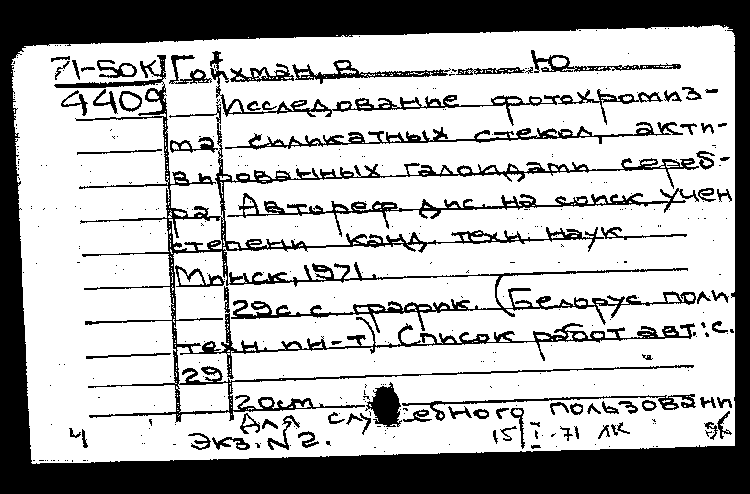 71-50К Гойхман, В Ю
4409 Исследование фотохромиз-
ма силикатных стекол, акти-
вированных галоидами сереб-
ра. Автореф. дис. на соиск. учен
степени канд. техн. наук.
Минск, 1971.
29с. с график. (Белорус. поли-
техн. ин-т). Список работ авт.: с.
29
20ст.
Для служебного пользовани
Экз. N 2.
Ч 15/I-71 ЛК